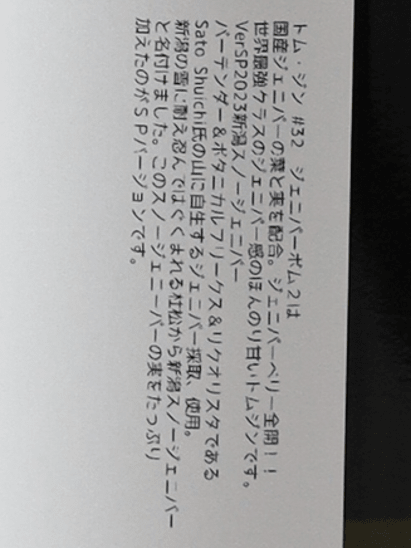 トム・ジン #32 ジェニパーボム２は
国産ジェニパーの葉と実を配合。ジェニパーベリー全開！！
世界最強クラスのジェニパー感のほんのり甘いトムジンです。
VerSP2023新潟スノージェニパー
バーテンダー＆ボタニカルフリークス＆リクオリスタである
Sato Shuichi氏の山に自生するジェニパー採取、使用。
新潟の雪に耐え忍んではぐくまれる杜松から新潟スノージェニパー
と名付けました。このスノージェニーパーの実をたっぷり
加えたのがＳＰバージョンです。